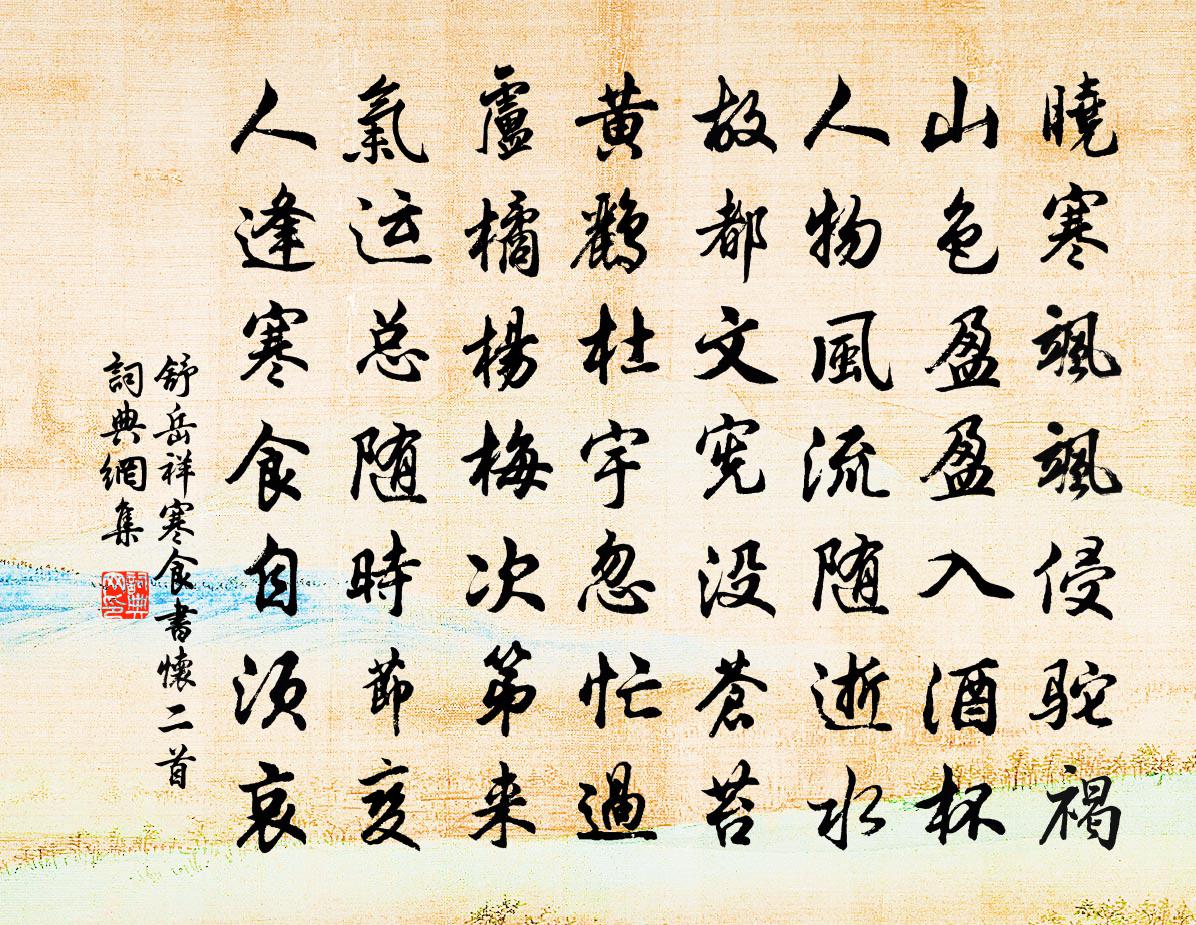 曉寒颯颯侵駝褐
山色盈盈入酒杯
人物風流随逝水
故都文宪没蒼苔
黄鸝杜宇忽忙過
盧橘楊梅次第来
氣运总随時節变
人逢寒食自须哀
舒岳祥寒食書懷二首
詞典網集